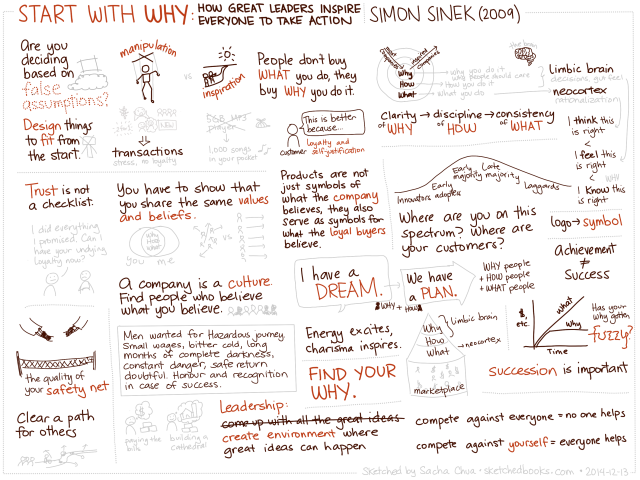 START WITH WHY: HOW GREAT LEADERS INSPIRE
EVERYONE TO TAKE ACTION
SIMON SINEK (2009)
Are you
deciding
based on
false
assumptions?
Design things
to fit from
the start.
manipulation
vs
inspiration
transactions
stress, no loyalty
People don't buy
WHAT you do, they
buy WHY you do it.
$$$ Mrs
prayer
1,000 songs
in your pocket
This is better
because...
customer
loyalty and
self-justification
Why
How
What
why you do it
why people should care
how you do it
what you do
the brain
Limbic brain
decisions, gut feel
neocortex
rationalization
Clarity → discipline → consistency
of WHY of HOW of WHAT
I think this
is right
<
I feel this
is right
WHY
I know this
is right
Trust is not
a checklist.
I did everything
I promised. Can I
have your undying
loyalty now?
You have to show that
you share the same values
and beliefs.
Why
How
What
you me
vs.
Products are not
just symbols of
what the company
believes, they also
serve as symbols for
what the loyal buyers
believe.
Innovators
Early
adopters
Early
majority
Late
majority
Laggards
Where are you on this
spectrum? Where are
your customers?
logo → symbol
Achievement
≠
Success
A company is a culture.
Find people who believe
what you believe.
I have a
DREAM.
We have
a PLAN.
WHY + HOW
WHY people
+ HOW people
+ WHAT people
$,
etc.
what
why
Time
Has your
why gotten
fuzzy?
the quality of
your safety net
Men wanted for Hazardous journey.
Small wages, bitter cold, long
months of complete darkness,
constant danger, safe return
doubtful. Honour and recognition
in case of success.
Energy excites,
charisma inspires.
FIND YOUR
WHY.
Why
How
What
Limbic brain
→ neocortex
marketplace
succession is important
Clear a path
for others
paying the
bills
building a
cathedral
Leadership:
come up with all the great ideas
create environment where
great ideas can happen
compete against everyone = no one helps
compete against yourself = everyone helps
Sketched by Sacha Chua • sketchedbooks.com • 2014-12-13